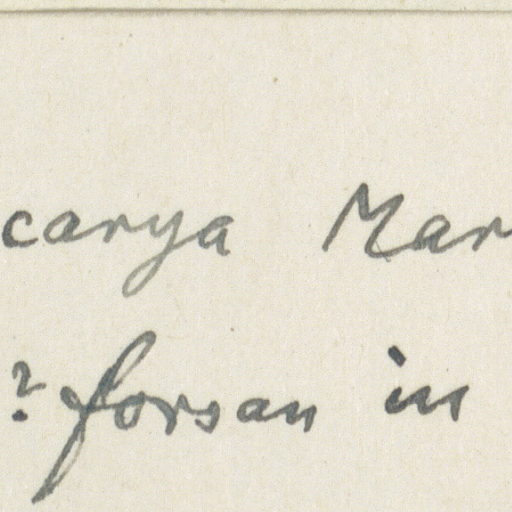 carya Mar
? forsan in